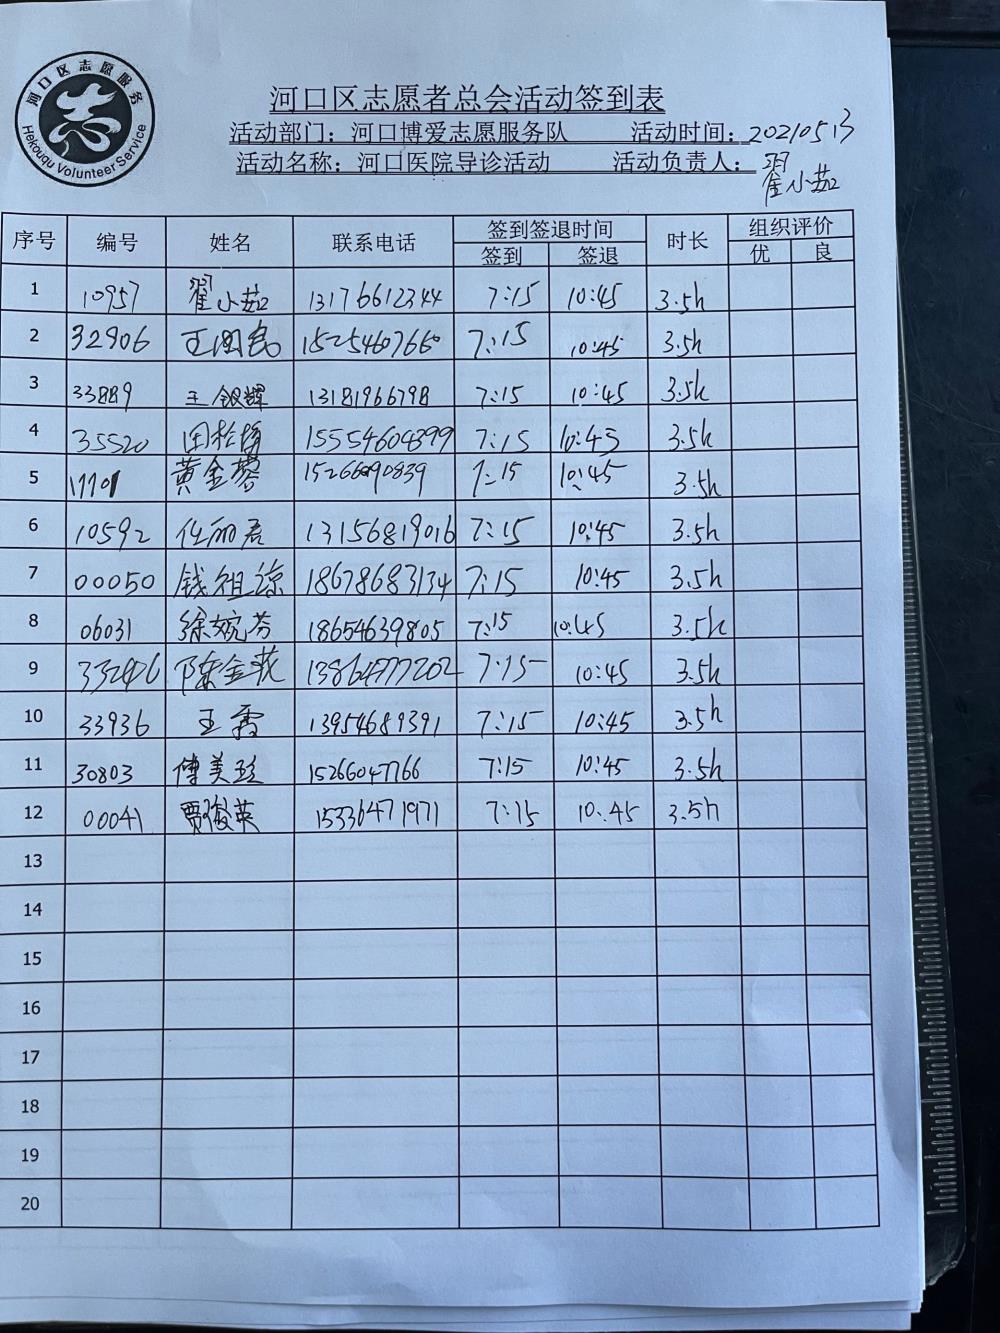 河口区志愿服务
Hekouqu Volunteer Service
河口区志愿者总会活动签到表
活动部门：河口博爱志愿服务队 活动时间：20210513
活动名称：河口医院导诊活动 活动负责人：翟小茹
序号 编号 姓名 联系电话 签到签退时间 时长 组织评价
签到 签退 优 良
1 10957 翟小茹 13176612344 7:15 10:45 3.5h
2 32906 王国民 15254607660 7:15 10:45 3.5h
3 33889 王银辉 13181966798 7:15 10:45 3.5h
4 35520 田 15554604899 7:15 10:45 3.5h
5 黄金蓉 7:15 10:45 3.5h
6 10592 任丽君 13156819016 7:15 10:45 3.5h
7 00050 钱祖琼 18678683134 7:15 10:45 3.5h
8 06031 徐婉芬 18654639805 7:15 10:45 3.5h
9 陈金 7:15 10:45 3.5h
10 33936 王霞 13954689391 7:15 10:45 3.5h
11 30803 傅美 15266047766 7:15 10:45 3.5h
12 00041 贾俊英 15336471971 7:15 10:45 3.5h
13
14
15
16
17
18
19
20